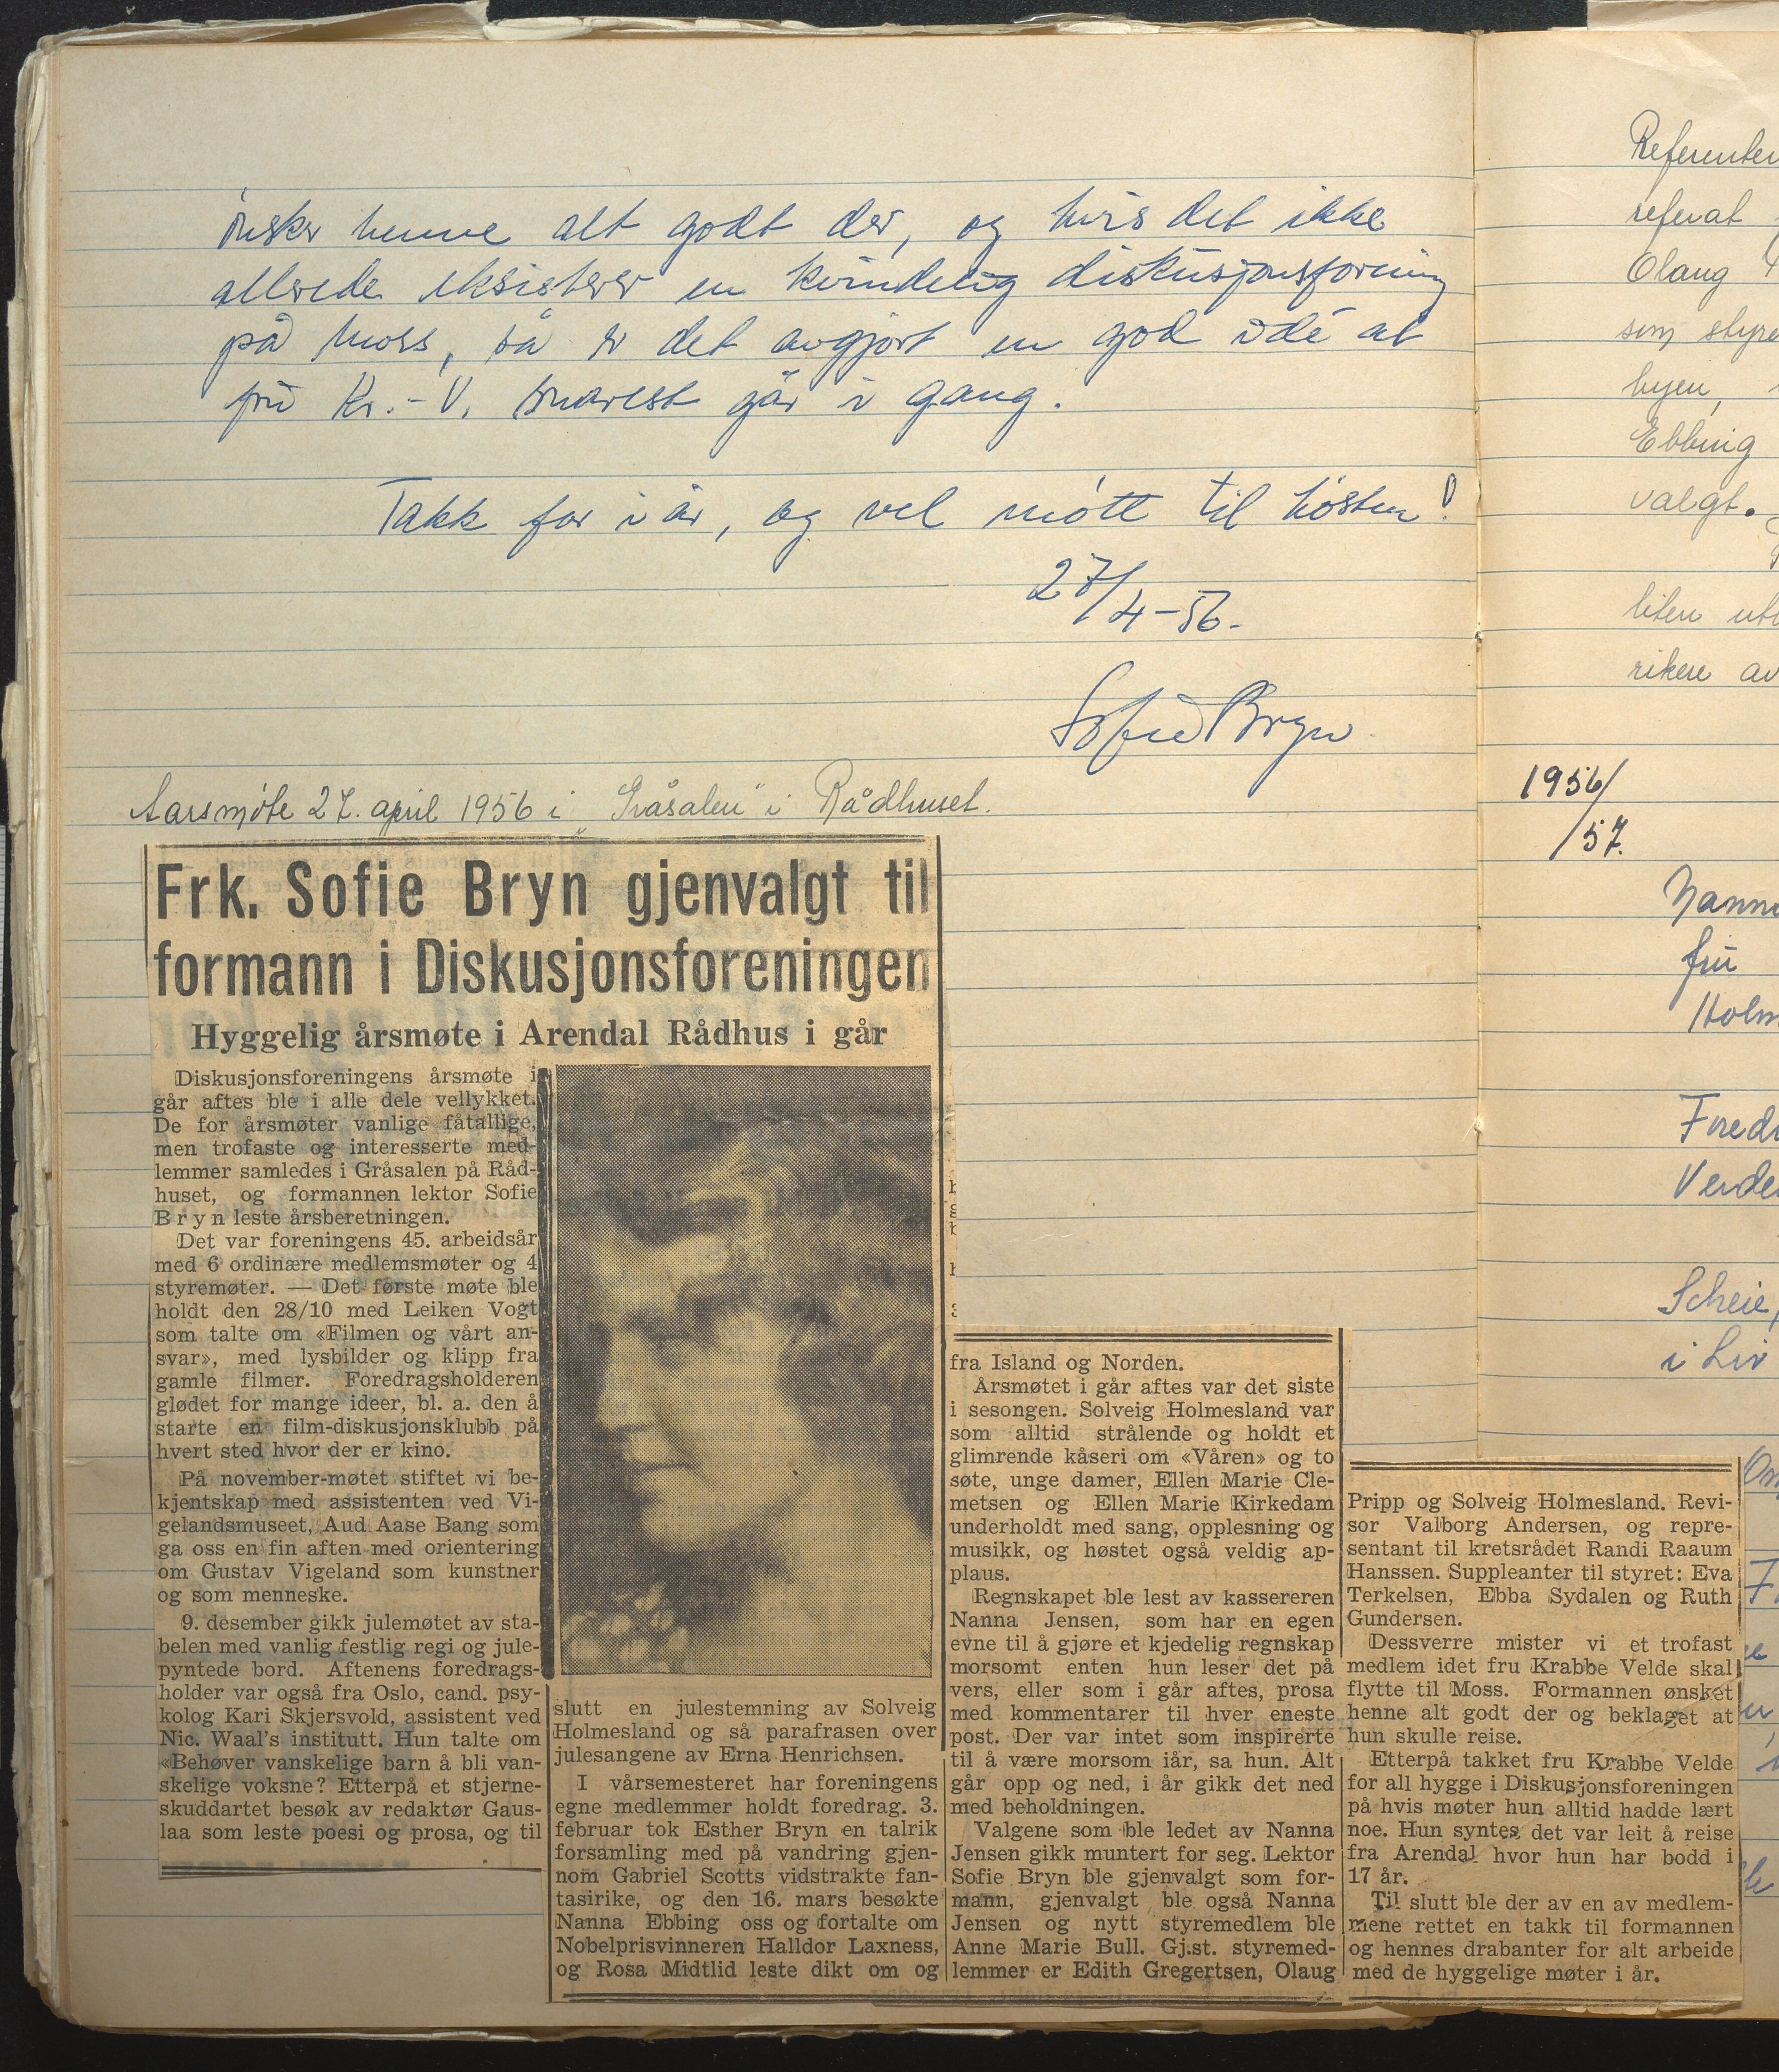 ønsker henne alt godt der, og hvis det ikke
allerede eksisterer en kvindelig diskusjonsforening
på Moss, så er det avgjort en god idé at
fru Kr.-V. snarest går i gang.
Takk for i år, og vel møtt til høsten!
27/4-56.
Sofie Bryn
Aarsmøte 27. april 1956 i „Gråsalen" i Rådhuset.
Frk. Sofie Bryn gjenvalgt til
formann i Diskusjonsforeningen
Hyggelig årsmøte i Arendal Rådhus i går
Diskusjonsforeningens årsmøte i
går aftes ble i alle dele vellykket.
De for årsmøter vanlige fåtallige,
men trofaste og interesserte med-
lemmer samledes i Gråsalen på Råd-
huset, og formannen lektor Sofie
Bryn leste årsberetningen.
Det var foreningens 45. arbeidsår
med 6 ordinære medlemsmøter og 4
styremøter. — Det første møte ble
holdt den 28/10 med Leiken Vogt
som talte om «Filmen og vårt an-
svar», med lysbilder og klipp fra
gamle filmer. Foredragsholderen
glødet for mange ideer, bl. a. den å
starte en film-diskusjonsklubb på
hvert sted hvor der er kino.
På november-møtet stiftet vi be-
kjentskap med assistenten ved Vi-
gelandsmuseet, Aud Aase Bang som
ga oss en fin aften med orientering
om Gustav Vigeland som kunstner
og som menneske.
9. desember gikk julemøtet av sta-
belen med vanlig festlig regi og jule-
pyntede bord. Aftenens foredrags-
holder var også fra Oslo, cand. psy-
kolog Kari Skjersvold, assistent ved
Nic. Waal's institutt. Hun talte om
«Behøver vanskelige barn å bli van-
skelige voksne? Etterpå et stjerne-
skuddartet besøk av redaktør Gaus-
laa som leste poesi og prosa, og til
slutt en julestemning av Solveig
Holmesland og så parafrasen over
julesangene av Erna Henrichsen.
I vårsemesteret har foreningens
egne medlemmer holdt foredrag. 3.
februar tok Esther Bryn en talrik
forsamling med på vandring gjen-
nom Gabriel Scotts vidstrakte fan-
tasirike, og den 16. mars besøkte
Nanna Ebbing oss og fortalte om
Nobelprisvinneren Halldor Laxness,
og Rosa Midtlid leste dikt om og
fra Island og Norden.
Årsmøtet i går aftes var det siste
i sesongen. Solveig Holmesland var
som alltid strålende og holdt et
glimrende kåseri om «Våren» og to
søte, unge damer, Ellen Marie Cle-
metsen og Ellen Marie Kirkedam
underholdt med sang, opplesning og
musikk, og høstet også veldig ap-
plaus.
Regnskapet ble lest av kassereren
Nanna Jensen, som har en egen
evne til å gjøre et kjedelig regnskap
morsomt enten hun leser det på
vers, eller som i går aftes, prosa
med kommentarer til hver eneste
post. Der var intet som inspirerte
til å være morsom iår, sa hun. Alt
går opp og ned, i år gikk det ned
med beholdningen.
Valgene som ble ledet av Nanna
Jensen gikk muntert for seg. Lektor
Sofie Bryn ble gjenvalgt som for-
mann, gjenvalgt ble også Nanna
Jensen og nytt styremedlem ble
Anne Marie Bull. Gj.st. styremed-
lemmer er Edith Gregertsen, Olaug
Pripp og Solveig Holmesland. Revi-
sor Valborg Andersen, og repre-
sentant til kretsrådet Randi Raaum
Hanssen. Suppleanter til styret: Eva
Terkelsen, Ebba Sydalen og Ruth
Gundersen.
Dessverre mister vi et trofast
medlem idet fru Krabbe Velde skal
flytte til Moss. Formannen ønsket
henne alt godt der og beklaget at
hun skulle reise.
Etterpå takket fru Krabbe Velde
for all hygge i Diskusjonsforeningen
på hvis møter hun alltid hadde lært
noe. Hun syntes det var leit å reise
fra Arendal hvor hun har bodd i
17 år.
Til slutt ble der av en av medlem-
mene rettet en takk til formannen
og hennes drabanter for alt arbeide
med de hyggelige møter i år.
Referenten
referat
Olaug
som styre
byen,
Ebbing
valgt.
liten
rikere av
1956/
/57.
Nanna
fru
Holm
Fred
Scheie,
i Liv